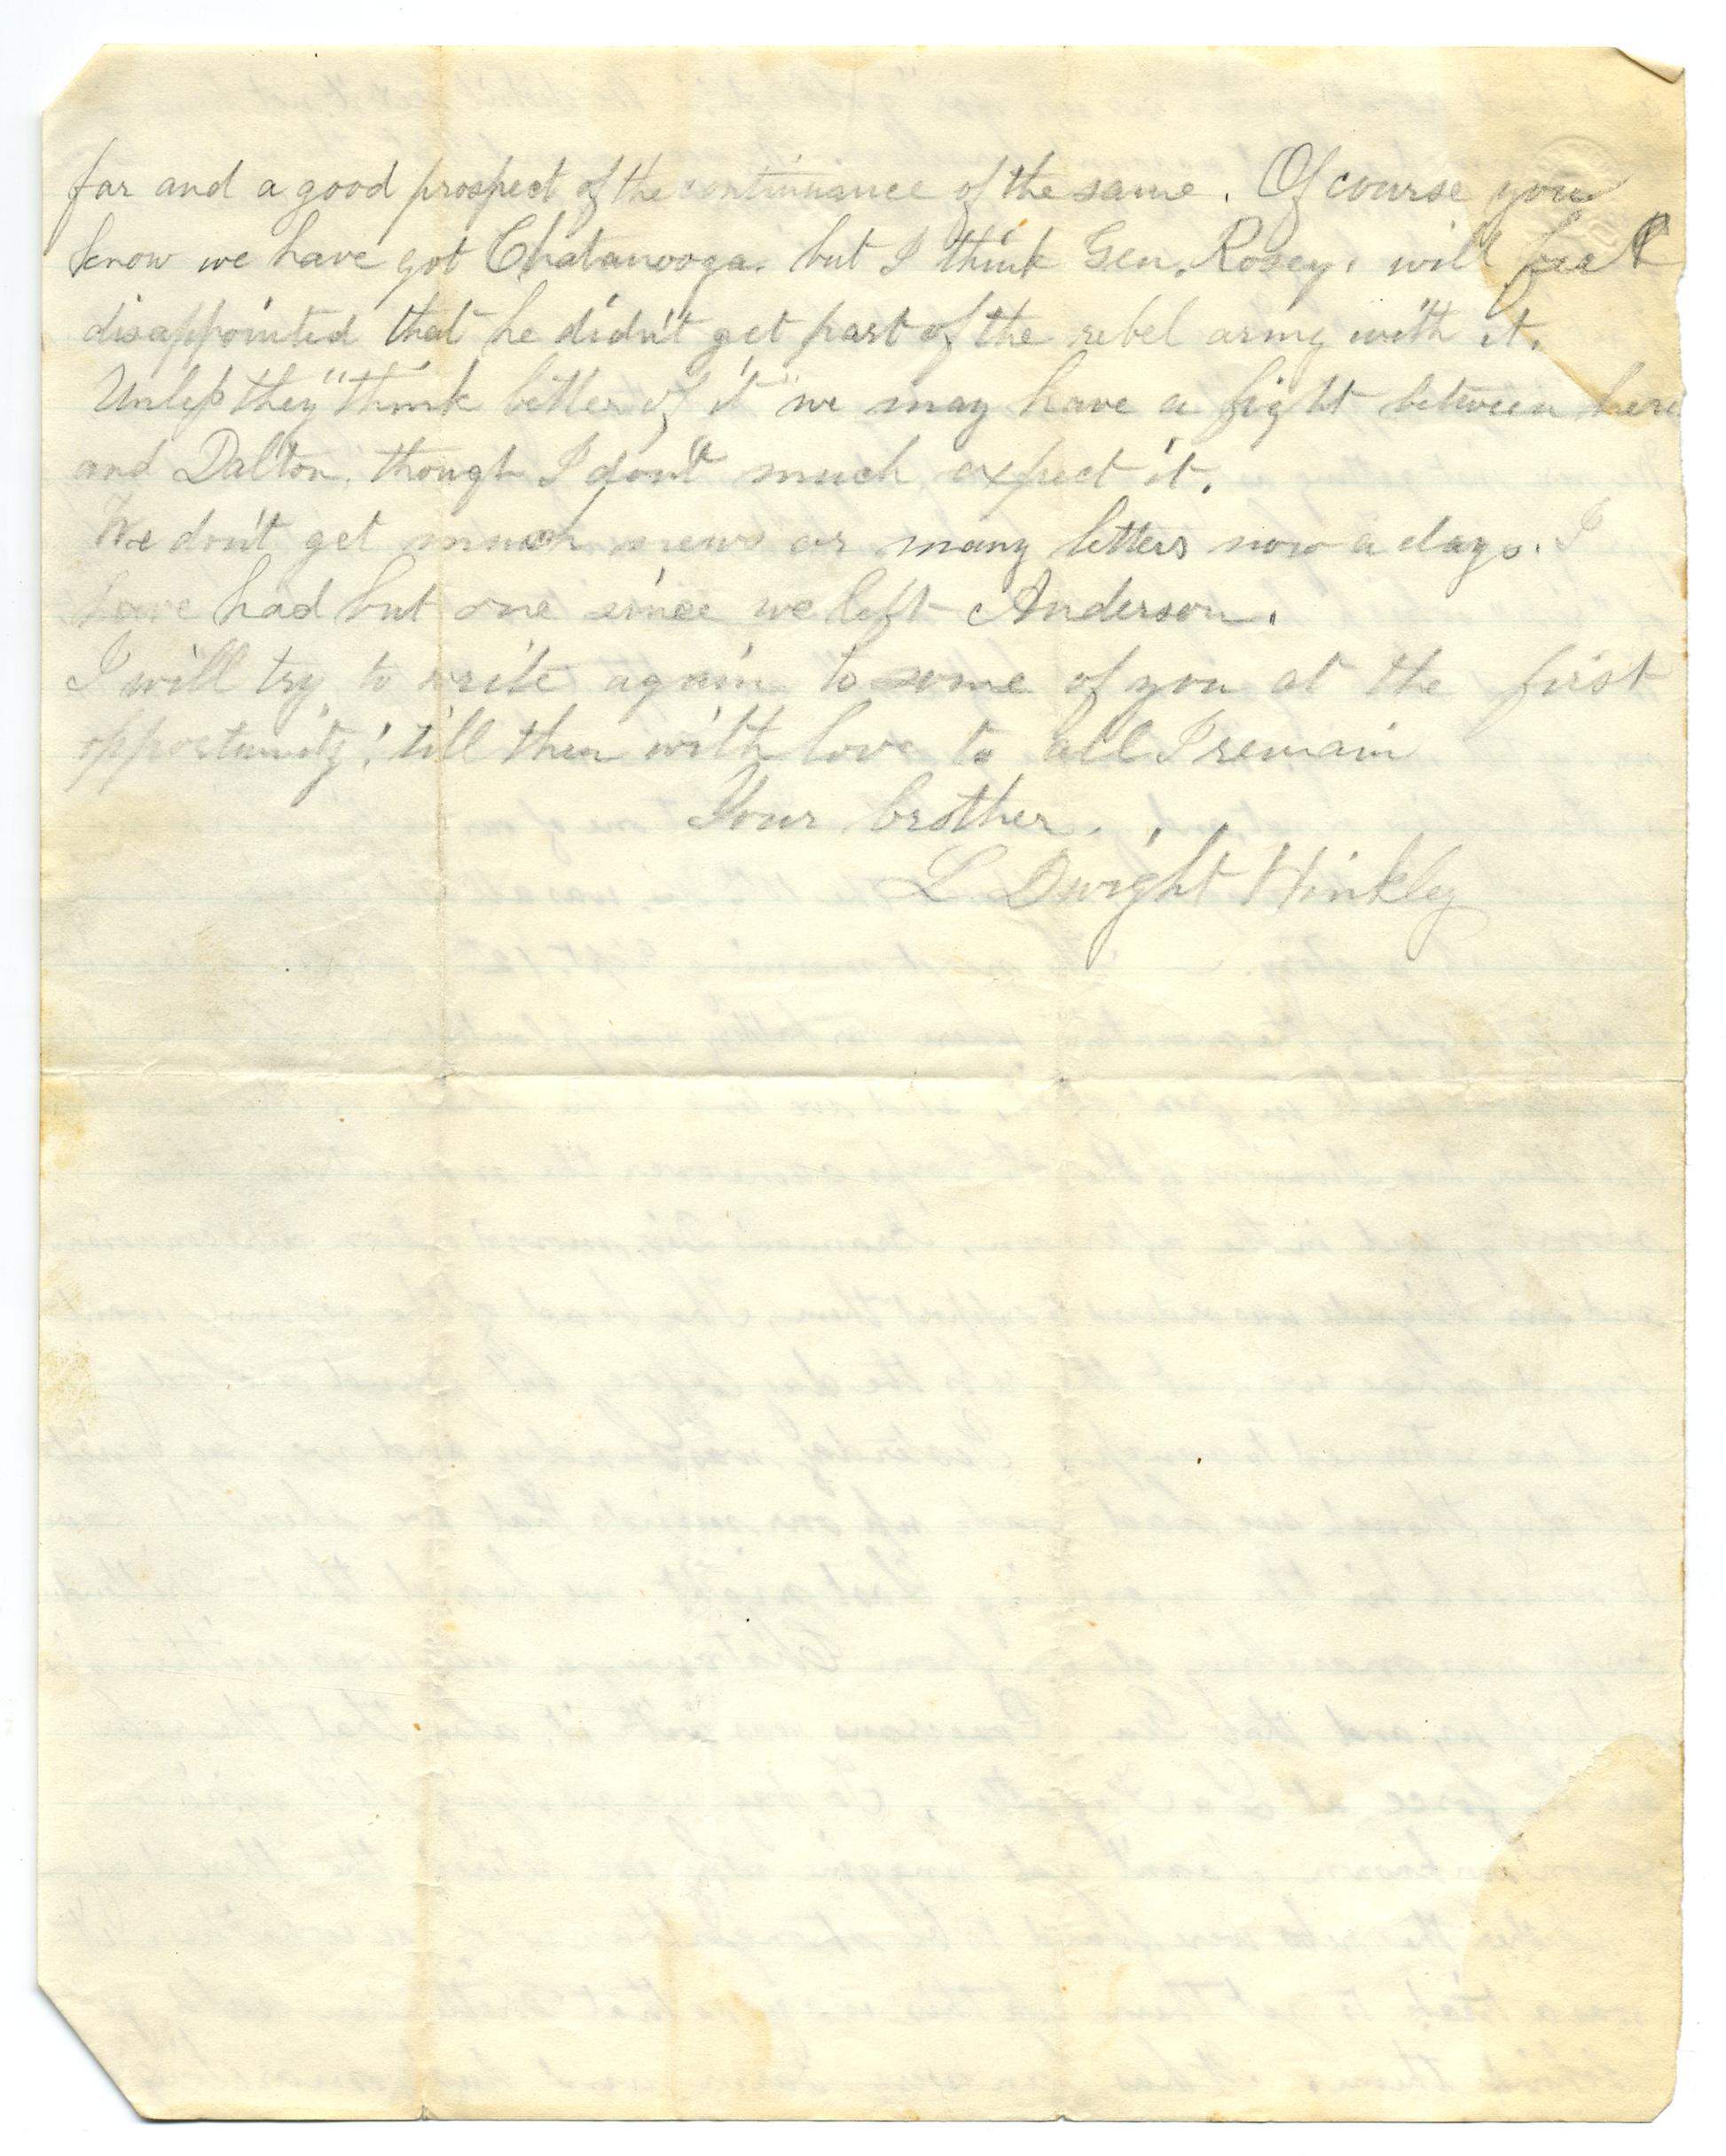 far and a good prospect of the continuance of the same. Of course you
know we have got Chatanooga. but I think Gen. Rosey. will feel
disappointed that he didn't get part of the rebel army with it.
Unless they "think better of it" we may have a fight between here
and Dalton, though I don't much expect it.
We don't get much news or many letters now a days. I
have had but one since we left Anderson.
I will try to write again to some of you at the first
opportunity; till then with love to all I remain
Your brother.
L Dwight Hinkley